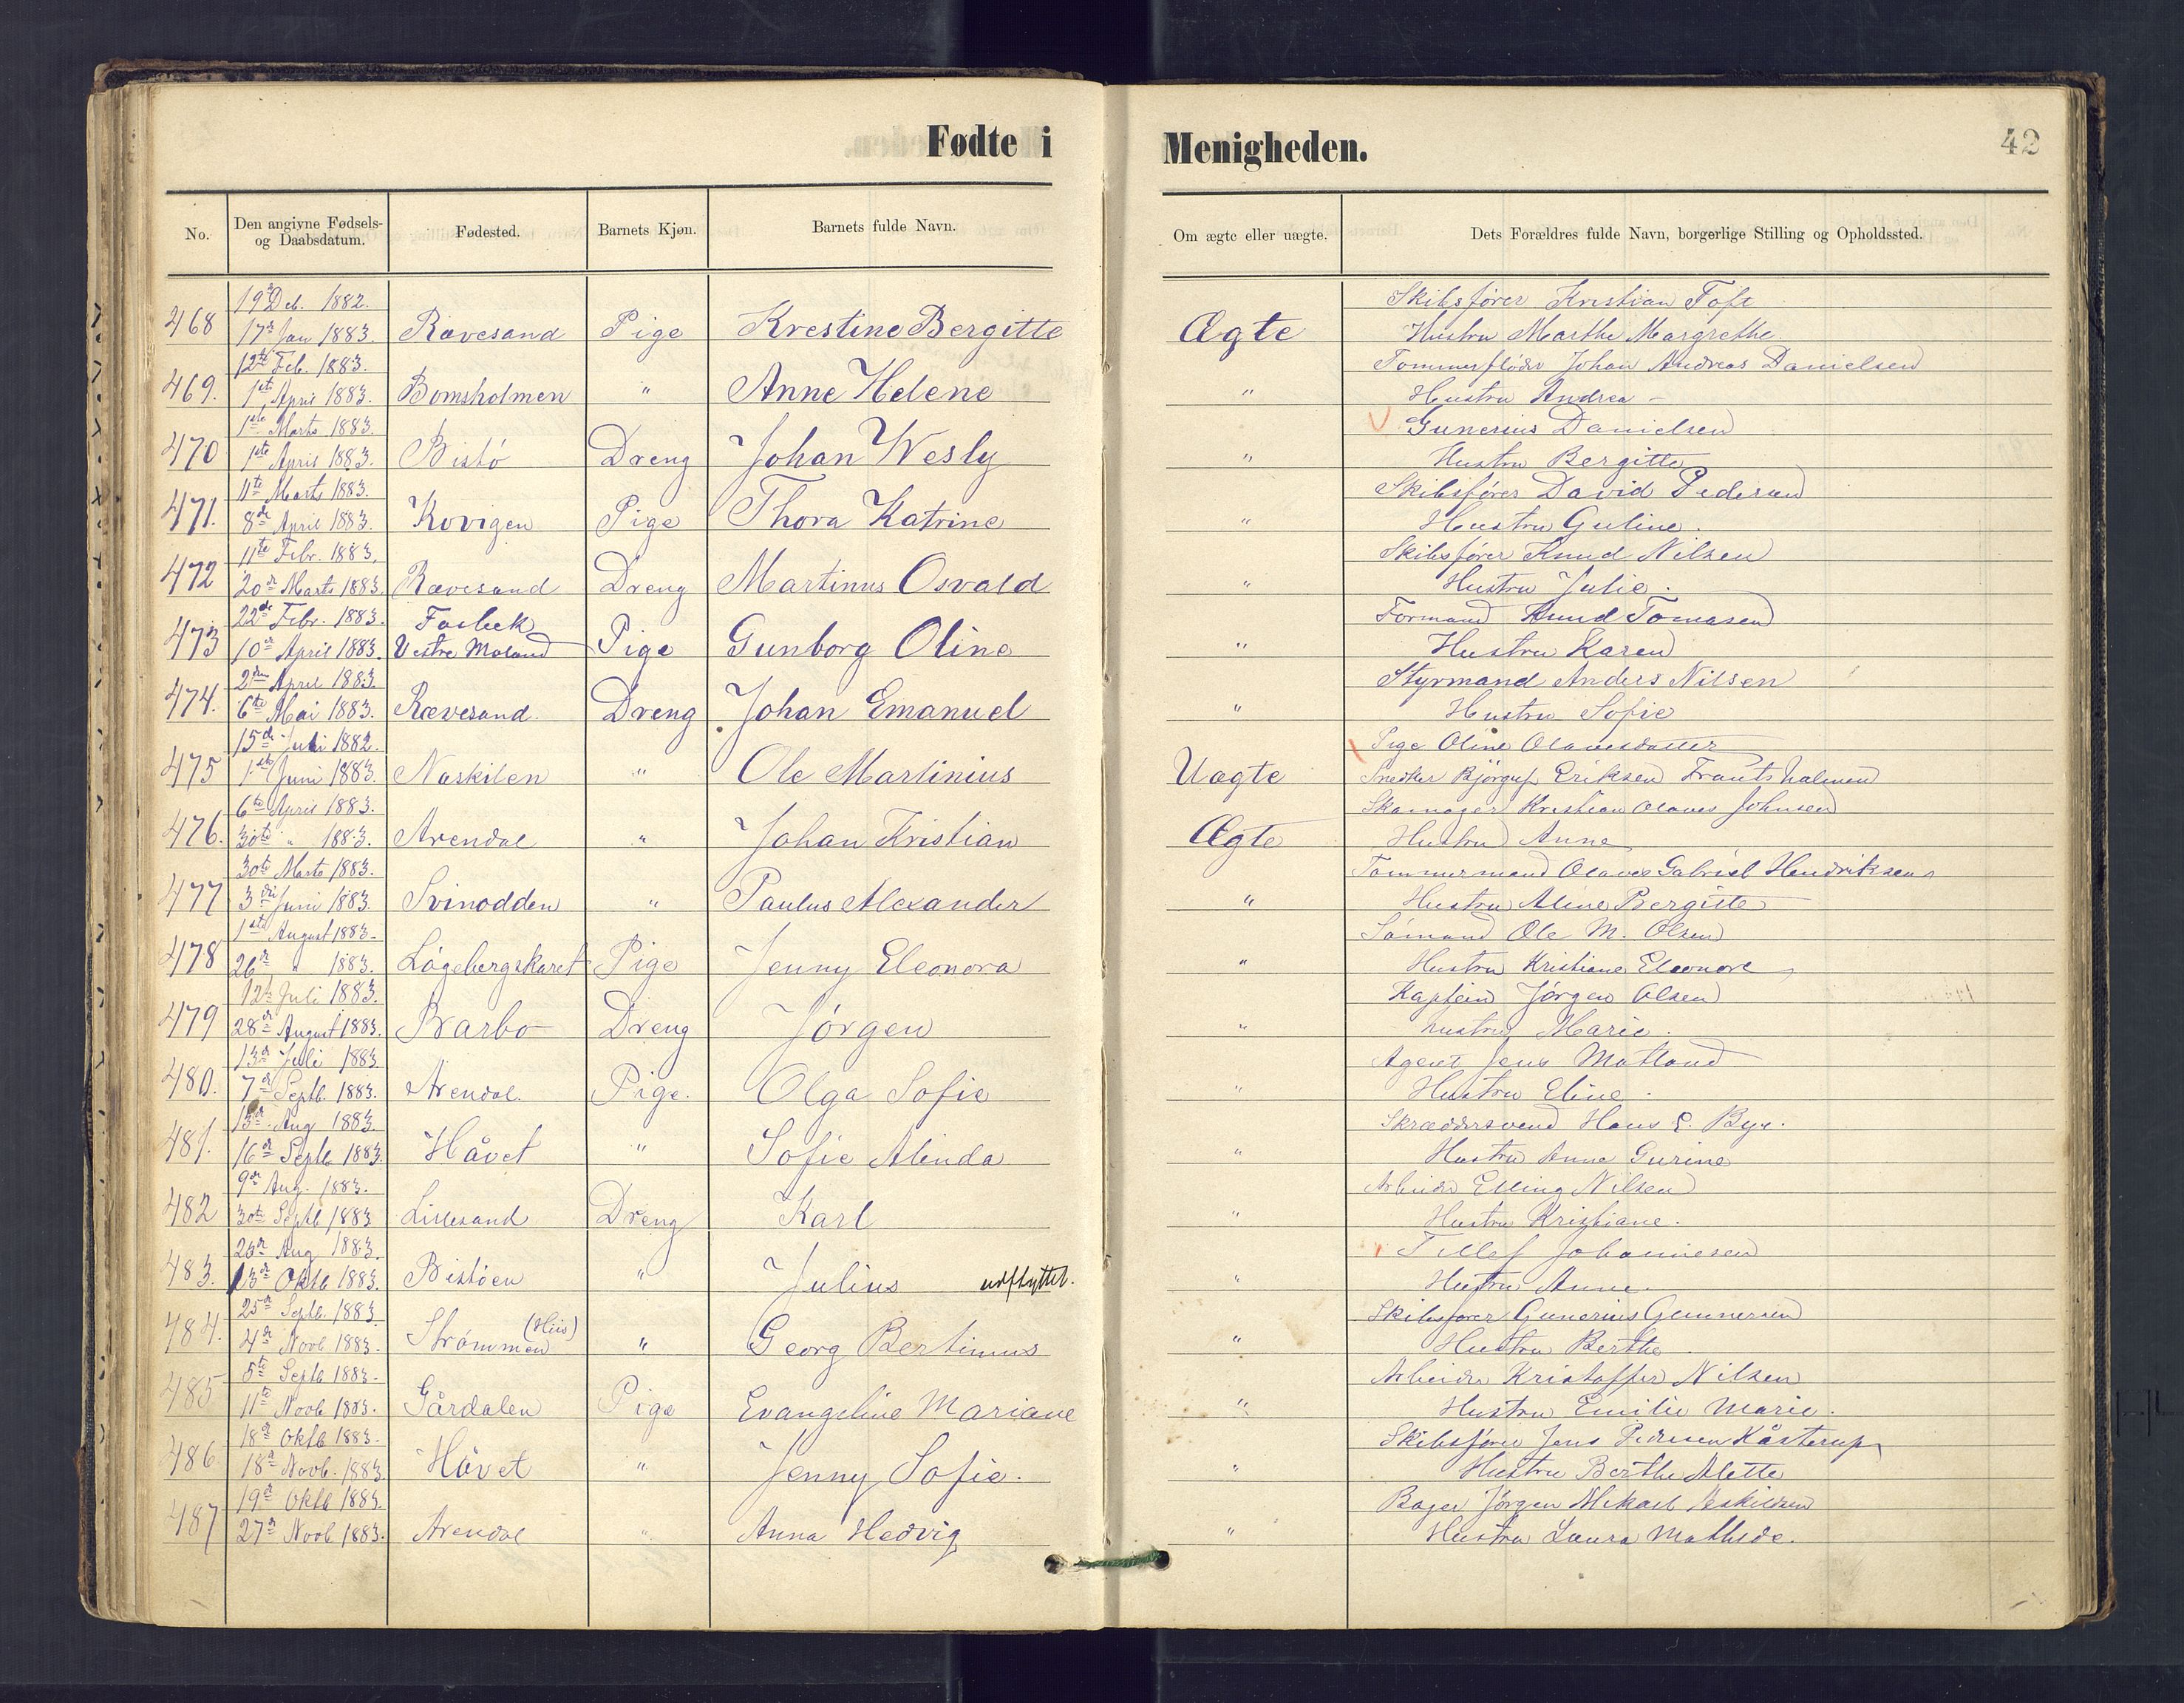 Fødte i Menigheden.
42
No. Den angivne Fødsels- og Daabsdatum. Fødested. Barnets Kjøn. Barnets fulde Navn. Om ægte eller uægte. Dets Forældres fulde Navn, borgerlige Stilling og Opholdssted.
19de Deb. 1882. Skibsfører Kristian Toft
468 17de Jan 1883. Rævesand Pige Krestine Bergitte Ægte Hustru Marthe Margrethe.
12te Feb. 1883. Tømmerfløder Johan Andreas Danielsen
469. 1ste April 1883. Bomsholmen " Anne Helene " Hustru Andrea
1ste Marts 1883. Gunerius Danielsen
470 1ste April 1883. Bistö Dreng Johan Wesly " Hustru Bergitte
11te Marts 1883. Skibsfører David Pedersen
471. 8de April 1883. Kovigen Pige Thora Katrine " Hustru Guline.
11te Febr. 1883. Skibsfører Knud Nilsen
472 20de Marts 1883. Rævesand Dreng Martinus Osvald " Hustru Julie.
22de Febr. 1883. Fosbek Formand Amund Tomasen
473 10de April 1883. Vestre Moland Pige Gunborg Oline " Hustru Karen
2den April 1883. Styrmand Anders Nilsen
474. 6te Mai 1883. Rævesand. Dreng Johan Emanuel " Hustru Sofie
15de Juli 1882. Pige Oline Olavesdatter
475 1ste Juni 1883. Naskilen " Ole Martinius Uægte Snedker Bjørgulf Eriksen Frantsholmen
6te April 1883. Skomager Kristian Olaves Johnsen
476. 30te " 1883. Arendal " Johan Kristian Ægte Hustru Anne
30te Marts 1883. Tømmermand Olaves Gabriel Hendriksen
477 3die Juni 1883. Svinodden " Paulus Alexander " Hustru Aline Bergitte
1ste August 1883. Sömand Ole M. Olsen
478 26de " 1883. Lögebergskaret Pige Jenny Eleonora " Hustru Kristiane Eleonore
12te Juli 1883. Kaptein Jörgen Olsen
479 28de August 1883. Barbo Dreng Jörgen " Hustru Marie.
13de Juli 1883. Agent Jens Matland
480. 7de Septb. 1883. Arendal. Pige. Olga Sofie " Hustru Eline.
13de Aug 1883. Skræddersvend Hans E. Bye.
481. 16de Septb 1883. Håvet " Sofie Alinda " Hustru Anne Gurine
9de Aug. 1883. Arbeider Elling Nilsen
482 30te Septb 1883 Lillesand Dreng Karl " Hustru Kristiane.
Aug 1883. Tellef Johannesen
483. 13de Oktb 1883. Bistöen " Julius udflyttet. " Hustru Anne.
25de Septb. 1883. (Hiis) Skibsfører Gunerius Gunnersen
484. 4de Novb 1883. Strømmen " Georg Bertinus " Hustru Berthe.
5te Septb 1883. Arbeider Kristoffer Nilsen
485 11te Novb 1883. Gårdalen Pige Evangeline Mariane " Hustru Emilie Marie.
18de Oktb 1883. Skibsfører Jens Pedersen Kåsterup
486 18de Novb. 1883. Håvet " Jenny Sofie. " Hustru Berthe Alette
19de Oktb 1883. Bager Jørgen Mikael Eskildsen
487 27de Novb 1883. Arendal " Anna Hedvig " Hustru Laura Mathilde.